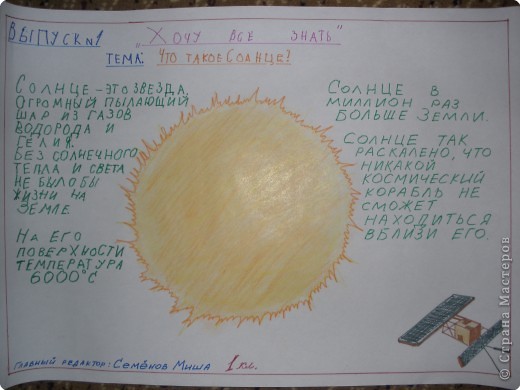 ВЫПУСК №1
„ХОЧУ ВСЁ ЗНАТЬ"
ТЕМА: ЧТО ТАКОЕ СОЛНЦЕ?
СОЛНЦЕ - ЭТО ЗВЕЗДА,
ОГРОМНЫЙ ПЫЛАЮЩИЙ
ШАР ИЗ ГАЗОВ
ВОДОРОДА И
ГЕЛИЯ.
БЕЗ СОЛНЕЧНОГО
ТЕПЛА И СВЕТА
НЕ БЫЛО БЫ
ЖИЗНИ НА
ЗЕМЛЕ
НА ЕГО
ПОВЕРХНОСТИ
ТЕМПЕРАТУРА
6000°С
СОЛНЦЕ В
МИЛЛИОН РАЗ
БОЛЬШЕ ЗЕМЛИ.
СОЛНЦЕ ТАК
РАСКАЛЕНО, ЧТО
НИКАКОЙ
КОСМИЧЕСКИЙ
КОРАБЛЬ НЕ
СМОЖЕТ
НАХОДИТЬСЯ
ВБЛИЗИ ЕГО.
ГЛАВНЫЙ редактор: Семёнов Миша 1 кл.
© Страна Мастеров